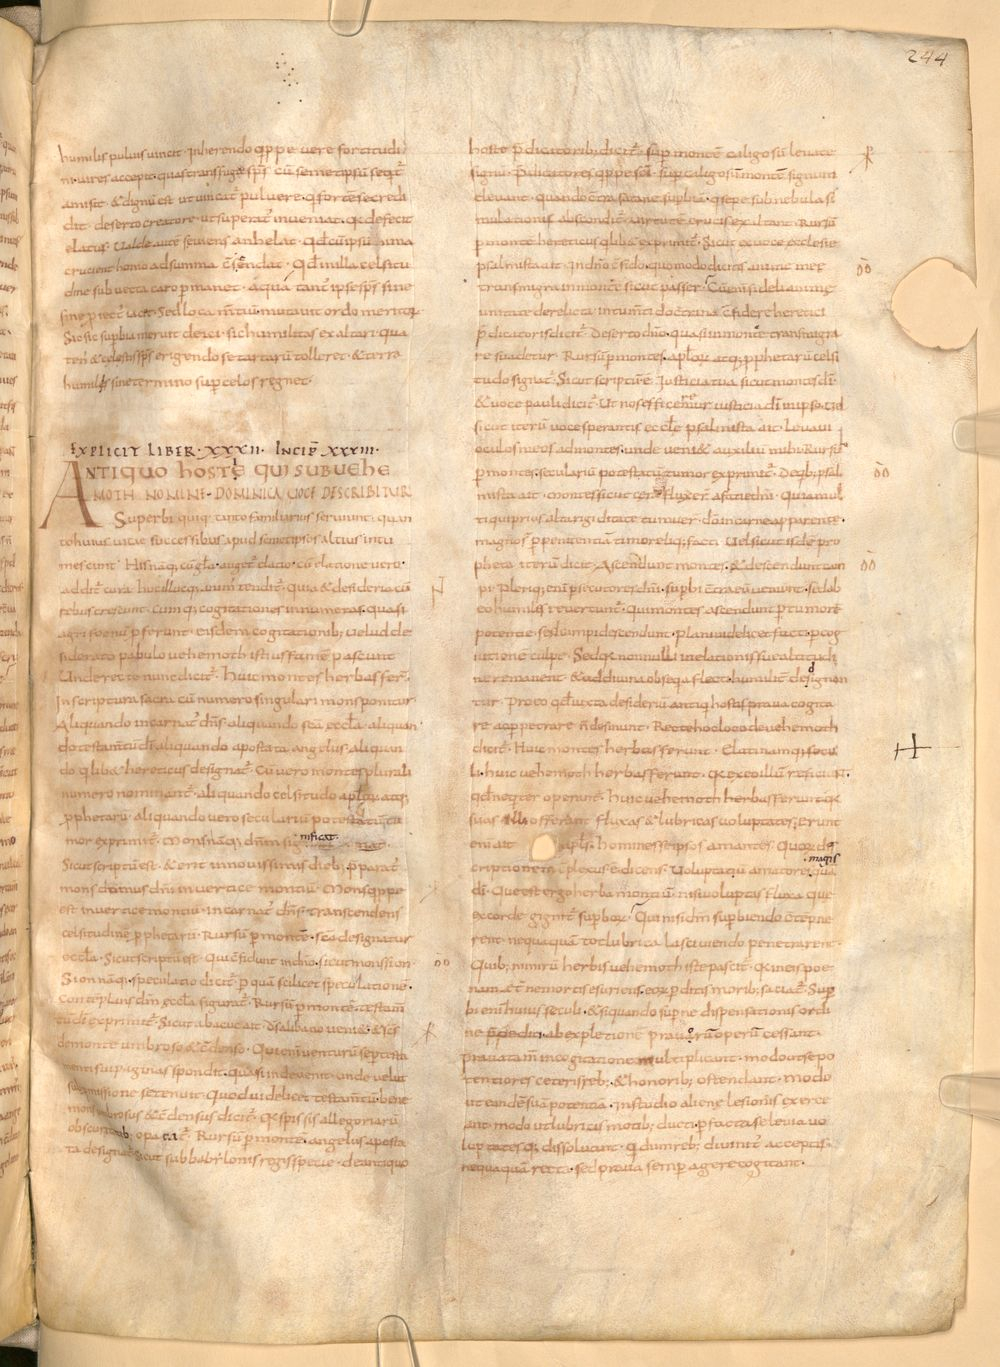 244
humilis pulvis vincit. Inherendo qppe vere fortitudi
ni. vires accepit. quas transfuga sps cū semetipsū seqt̄
amisit. & dignū est ut vincat̄ pulvere. q fortē se credi
dit. deserto creatore. ut superat̄ inveniat. qđ defecit
elatus. Valde autē seviens anhelat. Qđ cū ipsū ima
crucient homo ad summa c̄scendat. Qđ in illa celsitu
dine subvecta caro pmanet. a qua tant' ipse sps sine
sine piect' iacet. Sed loca m̄tiū mutavit ordo meritoꝝ
Sic sic supbia meruit deici. sic humilitas exaltari. qua
ten' & celestis sps erigendo se tartarū tolleret. & terra
humilis sine termino sup celos regnet.
EXPLICIT LIBER . XXXII . INCIP̄ XXXIII .
ANTIQUO HOSTE QUI SUB VEHE
MOTH NOMINE DOMINICA VOCE DESCRIBITUR
Superbi quiq; tanto familiarius serviunt. quan
to huius vitae successibus apud semetipsos altius intu
mescunt. His namq; cū gła auget̄ elatio. cū elatione vero
addit̄ cura. huc illucq; anim' tendit̄. quia & desideria cū
rebus crescunt. Cumq; cogitationes innumeras. quasi
agri foenū pferunt. eisdem cogitationib; velud de
siderato pabulo vehemoth isti' famē pascunt
Unde recte nunc dicit̄. Huic montes herbas fer̄.
In scriptura sacra cū numero singulari mons ponitur
Aliquando incarnat' dn̄s. aliquando scā eccła. aliquan
do testam̄tū dī. aliquando apostata angelus. aliquan
do qlib& hereticus designat̄. Cū vero montes plurali
numero nominant̄. aliquando celsitudo apłoꝝ atq;
pphetarū. aliquando vero seculariū potestatū tu
mor exprimit̄. Mons namq; dn̄m significat.
Sicut scriptū est. & erit in novissimis dieb; pparat'
mons domus dn̄i in vertice montiū. Mons qppe
est in vertice montiū. incarnat' dn̄s. transcendens
celsitudinē pphetarū. Rursū p montē. scā designatur
eccła. Sicut scriptū est. Qui c̄fidunt in dn̄o. sicut mons sion.
Sion namq; speculatio dicit̄. p quā scilicet speculationē.
contēplans dm̄ eccła figurat̄. Rursū p montē. testam̄
tū dī exprimit̄. Sicut abacuc ait. D̄s a libano veni&. & scs
de monte umbroso & c̄denso. Qui enī venturū se p testa
menti sui paginas spondit. quasi inde venit. unde velut
se pmissione se tenuit. Quod videlicet testam̄tū. bene
mons umbrosus & c̄densus dicit̄. q spissis allegoriarū
obscuritatib; opacat̄. Rursū p montē. angelus aposta
ta designat̄. Sicut sub babylonis regis specie. de antiquo
hoste pdicatorib; dicit̄. Sup montē caligosū levate
signū. Pdicatores qppe scī. sup caligosū montē signum
elevant. quando ctra satane supbiā. q sepe sub nebula si
mulationis abscondit̄. virtutē crucis exaltant. Rursū
p monte hereticus qlib& exprimit̄. Sicut ex voce ecclesie
psalmista ait. In dn̄o c̄fido. quomodo dicitis anime meę
transmigra in monte sicut passer. Cū enī fideli anime
unitate derelicta. in tumenti doctrina c̄fidere heretici
pdicatoris dicit̄. Deserto dn̄o. quasi in monte transmigra
re suadetur. Rursū p montes. apłoꝝ atq; pphetarū celsi
tudo signat̄. Sicut scriptū ē. Iusticia tua sicut montes dī.
& voce pauli dicit̄. Ut nos efficeremur iusticia dī in ipso. Vel
sicut iterū voce sperantis ecclē psalmista ait. Levavi
oculos meos ad montes. unde veni& auxiliū mihi. Rursū
p montes. seculariū potestatū tumor exprimit̄. De qb; psal
mista ait. Montes sicut cera fluxer̄ a facie dn̄i. Quia mul
ti qui prius alta rigiditate tumuer̄. dō in carne apparente.
magno sunt p penitentiā timore liq;facti. Vel sicut isdē pro
pheta iterū dicit. Ascendunt montes. & descendunt cam
pi. Pleriq; enī psecutores dn̄i. supbi c̄tra eū veniunt. sed ab
eo humiles revertunt̄. Qui montes ascendunt p tumorē
potentie. sed campi descendunt. plani videlicet facti p cog
nitionē culpe. Sed qa nonnulli in elationis sue altitudi
ne remanent. & ad divina obsequia flecti humilit' dedignan
tur. Pro eo qđ iuxta desideriū antiq hostis prava cogita
re ac ppetrare n̄ desinunt. Recte hoc loco de vehemoth
dicit̄. Huic montes herbas ferunt. Elati namq; secu
li. huic vehemoth herbas ferunt. q ex eo illū reficiunt.
qđ neqter operant̄. Huic vehemoth herbas ferunt. q
suas illi offerunt fluxas & lubricas voluptates. Erunt
enī ait apłs. homines se ipsos amantes. Quoꝝ de
scriptionem c̄plexus ē dicens. Voluptatū amatores. magis quā
dī. Que est ergo herba montiū. nisi voluptas fluxa que
ex corde gignit̄ supboꝝ. Qui nisi dm̄ supbiendo c̄tempne
rent. nequaquā tot lubrica lasciviendo penetrarent.
Quib; nimirū herbis vehemoth iste pascit̄. q in eis poe
nam aet̄ne mortis esuriens. eoꝝ pditis morib; satiat̄. Sup
bi enī huius seculi. & si quando supne dispensationis ordi
ne ppediti. ab expletione pravoru operū cessant.
prava tam̄ in cogitatione multiplicant. modo ut se po
tentiores ceteris reb; & honorib; ostendant. Modo
ut eandē suā potentiā. in studio alienę lesionis exerce
ant. modo ut lubricis motib; ducti. p facta se levia vo
luptates q; dissolvant. q dum reb; divinit' acceptis.
nequaquā recta. sed prava semp agere cogitant.